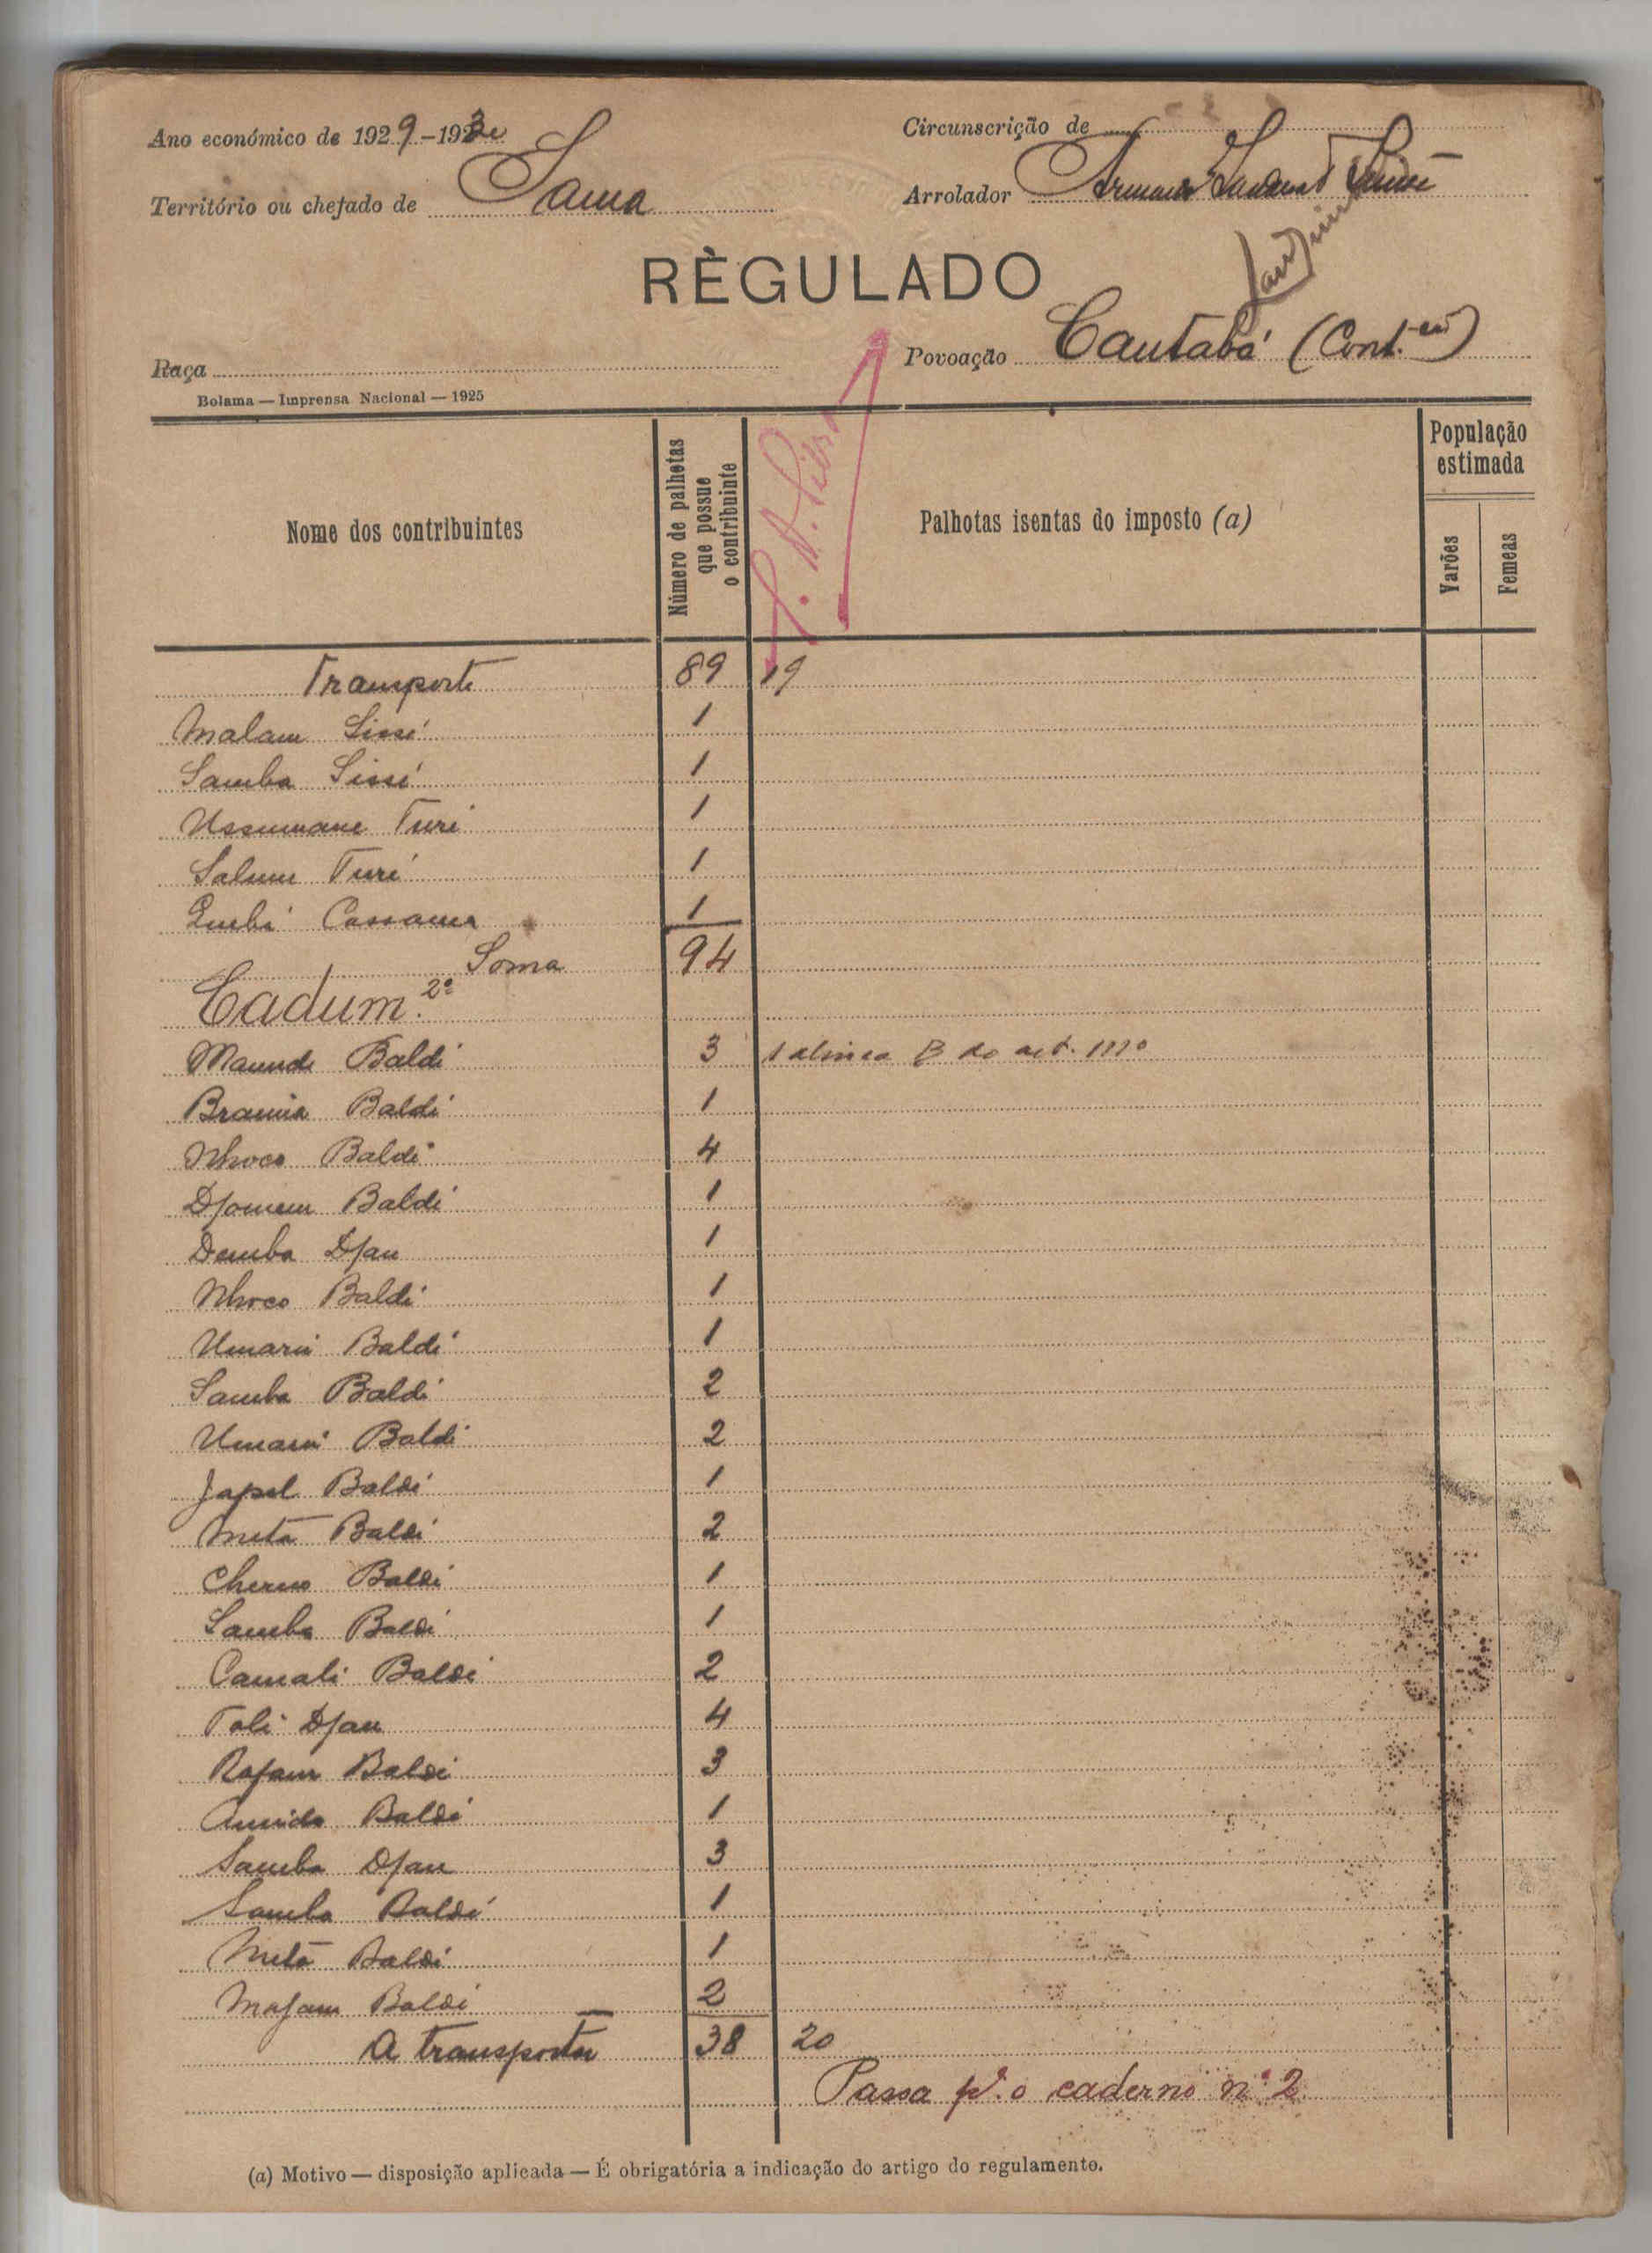 Ano económico de 1929-1930
Circunscrição de
Território ou chefado de Sama
Arrolador
RÈGULADO
Raça
Povoação Cantabá (Cont.ção)
Bolama — Imprensa Nacional — 1925
Nome dos contribuintes
Número de palhotas que possue o contribuinte
Palhotas isentas do imposto (a)
População estimada
Varões
Femeas
Transporte 89 19
Malam Sissé 1
Samba Sissé 1
Ussumane Turé 1
Turé 1
Cassama 1
Soma 94
Cadum 2º
Maunde Baldé 3 1 alinea B do art. 111º
Braima Baldé 1
Nhoco Baldé 4
Baldé 1
Demba Djau 1
Nhoco Baldé 1
Umaru Baldé 1
Samba Baldé 2
Umaru Baldé 2
Baldé 1
Meta Baldé 2
Cherno Baldé 1
Samba Baldé 1
Camali Baldé 2
Toli Djau 4
Baldé 3
Amido Baldé 1
Samba Djau 3
Samba Baldé 1
Meta Baldé 1
Baldé 2
A transportar 38 20
Passa pª o caderno nº 2
(a) Motivo — disposição aplicada — É obrigatória a indicação do artigo do regulamento.